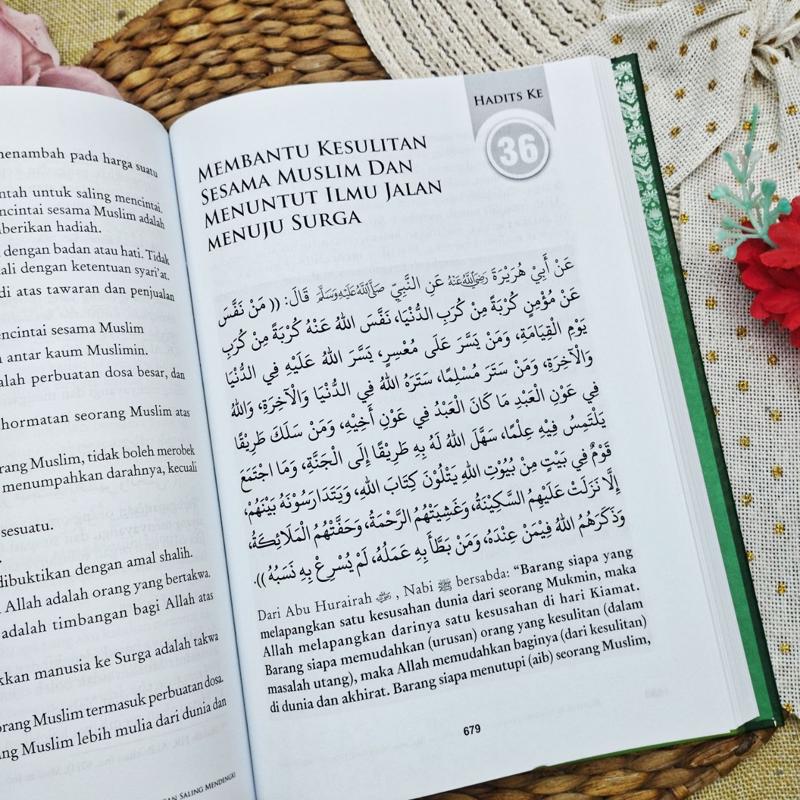 menambah pada harga suatu
untah untuk saling mencintai.
encintai sesama Muslim adalah
mberikan hadiah.
dengan badan atau hati. Tidak
ali dengan ketentuan syari'at.
di atas tawaran dan penjualan
encintai sesama Muslim
antar kaum Muslimin.
alah perbuatan dosa besar, dan
hormatan seorang Muslim atas
rang Muslim, tidak boleh merobek
menumpahkan darahnya, kecuali
sesuatu.
dibuktikan dengan amal shalih.
Allah adalah orang yang bertakwa.
adalah timbangan bagi Allah atas
kkan manusia ke Surga adalah takwa
orang Muslim termasuk perbuatan dosa.
ng Muslim lebih mulia dari dunia dan
SALING MENDENGKI
HADITS KE
36
MEMBANTU KESULITAN
SESAMA MUSLIM DAN
MENUNTUT ILMU JALAN
MENUJU SURGA
عَنْ أَبِيْ هُرَيْرَةَ رَضِيَ اللهُ عَنْهُ عَنِ النَّبِيِّ صَلَّى اللهُ عَلَيْهِ وَسَلَّمَ قَالَ: (( مَنْ نَفَّسَ
عَنْ مُؤْمِنٍ كُرْبَةً مِنْ كُرَبِ الدُّنْيَا، نَفَّسَ اللهُ عَنْهُ كُرْبَةً مِنْ كُرَبِ
يَوْمِ الْقِيَامَةِ، وَمَنْ يَسَّرَ عَلَى مُعْسِرٍ، يَسَّرَ اللهُ عَلَيْهِ فِي الدُّنْيَا
وَالْآخِرَةِ، وَمَنْ سَتَرَ مُسْلِمًا، سَتَرَهُ اللهُ فِي الدُّنْيَا وَالْآخِرَةِ، وَاللهُ
فِي عَوْنِ الْعَبْدِ مَا كَانَ الْعَبْدُ فِي عَوْنِ أَخِيْهِ، وَمَنْ سَلَكَ طَرِيْقًا
يَلْتَمِسُ فِيْهِ عِلْمًا، سَهَّلَ اللهُ لَهُ بِهِ طَرِيْقًا إِلَى الْجَنَّةِ، وَمَا اجْتَمَعَ
قَوْمٌ فِي بَيْتٍ مِنْ بُيُوْتِ اللهِ يَتْلُوْنَ كِتَابَ اللهِ، وَيَتَدَارَسُوْنَهُ بَيْنَهُمْ،
إِلَّا نَزَلَتْ عَلَيْهِمُ السَّكِيْنَةُ، وَغَشِيَتْهُمُ الرَّحْمَةُ، وَحَفَّتْهُمُ الْمَلَائِكَةُ،
وَذَكَرَهُمُ اللهُ فِيْمَنْ عِنْدَهُ، وَمَنْ بَطَّأَ بِهِ عَمَلُهُ، لَمْ يُسْرِعْ بِهِ نَسَبُهُ )).
Dari Abu Hurairah رضي الله عنه, Nabi ﷺ bersabda: “Barang siapa yang
melapangkan satu kesusahan dunia dari seorang Mukmin, maka
Allah melapangkan darinya satu kesusahan di hari Kiamat.
Barang siapa memudahkan (urusan) orang yang kesulitan (dalam
masalah utang), maka Allah memudahkan baginya (dari kesulitan)
di dunia dan akhirat. Barang siapa menutupi (aib) seorang Muslim,
679